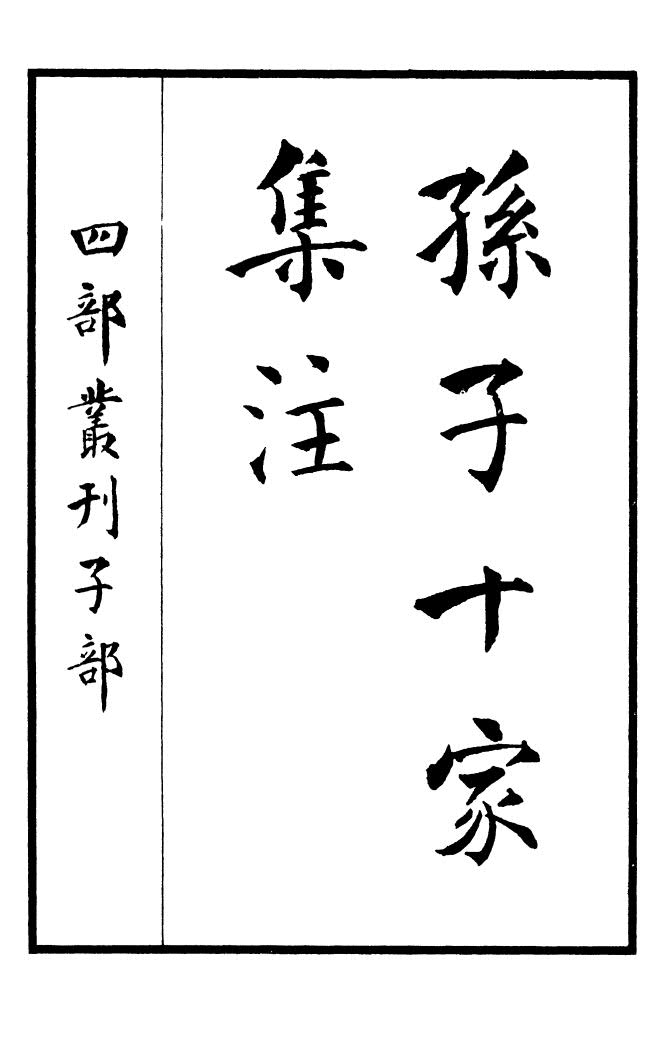 孫子十家
集注
四部叢刊子部